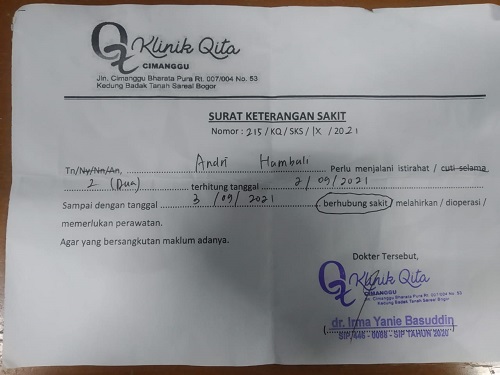 Klinik Qita
CIMANGGU
Jln. Cimanggu Bharata Pura Rt. 007/004 No. 53
Kedung Badak Tanah Sareal Bogor
SURAT KETERANGAN SAKIT
Nomor : 215 / KQ / SKS / IX / 2021
Tn/Ny/Nn/An, Andri Hambali Perlu menjalani istirahat / cuti selama
2 (Dua) terhitung tanggal 2/09/2021
Sampai dengan tanggal 3/09/2021 berhubung sakit / melahirkan / dioperasi /
memerlukan perawatan.
Agar yang bersangkutan maklum adanya.
Dokter Tersebut,
Klinik Qita
CIMANGGU
Jln. Cimanggu Bharata Pura Rt. 007/004 No. 53
Kedung Badak Tanah Sareal Bogor
dr. Irma Yanie Basuddin
SIP/446 - 0088 - SIP TAHUN 2020